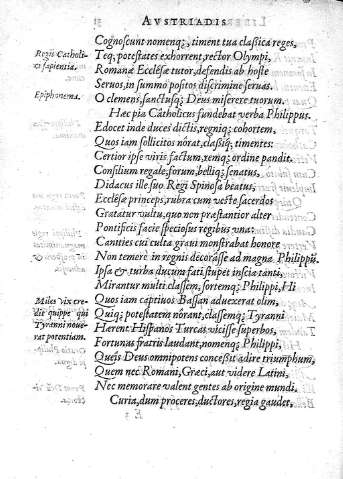 AVSTRIADIS
Cognoscunt nomenq́;, timent tua classica reges,
Regis Catholi-
ci sapientia.
Teq́; potestates exhorrent, rector Olympi,
Romanæ Ecclesæ tutor, defendis ab hoste
Seruos, in summo positos discrimine seruas.
Epiphonema.
O clemens, sanctusq́; Deus miserere tuorum.
Hæc pia Catholicus fundebat verba Philippus.
Edocet inde duces dictis, regniq́; cohortem,
Quos iam sollicitos nôrat, classisq́; timentes:
Certior ipse viris factum, remq́; ordine pandit.
Consilium regale, forum, belliq́; senatus,
Didacus ille suo Regi Spinosa beatus,
Ecclesæ princeps, rubra cum veste sacerdos
Gratatur vultu, quo non præstantior alter
Pontificis facie speciosus regibus vna:
Canities cui culta graui monstrabat honore
Non temerè in regnis decorasse ad magna Philippũ.
Ipsa & turba ducum fati stupet inscia tanti,
Mirantur multi classem, sortemq́; Philippi, Hi
Miles vix cre-
dit quippe qui
Tyranni noue-
rat potentiam.
Quos iam captiuos Bassan aduexerat olim,
Quiq́; potestatem nôrant, classemq́; Tyranni
Hærent Hispanos Turcas vicisse superbos,
Fortunas fratris laudant, nomenq́; Philippi,
Queîs Deus omnipotens concessit adire triumphum,
Quem nec Romani, Græci, aut videre Latini,
Nec memorare valent gentes ab origine mundi.
Curia, dum proceres, ductores, regia gaudet,